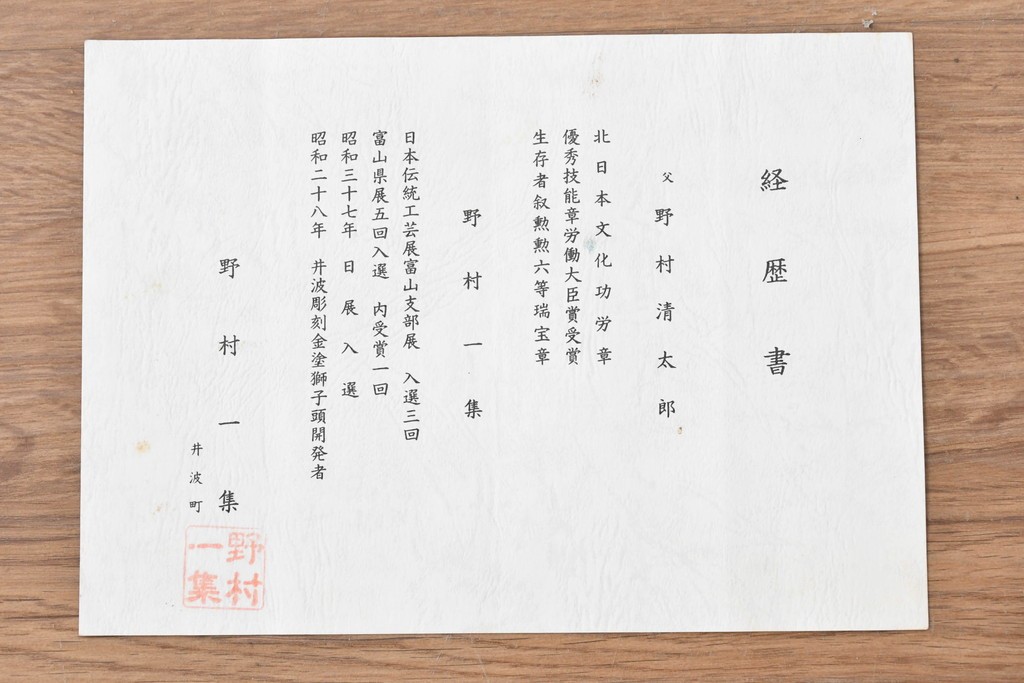 経歴書
父 野村清太郎
北日本文化功労章
優秀技能章労働大臣賞受賞
生存者叙勲勲六等瑞宝章
野村一集
日本伝統工芸展富山支部展 入選三回
富山県展五回入選 内受賞一回
昭和三十七年 日展入選
昭和二十八年 井波彫刻金塗獅子頭開発者
野村一集
井波町
野村
一集